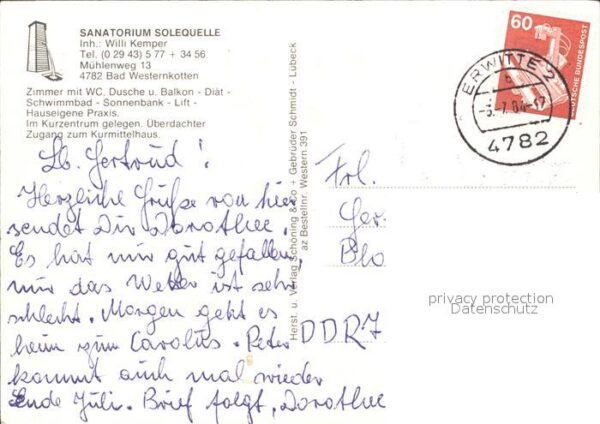 SANATORIUM SOLEQUELLE
Inh.: Willi Kemper
Tel. (0 29 43) 5 77 + 34 56
Mühlenweg 13
4782 Bad Westernkotten
Zimmer mit WC, Dusche u. Balkon - Diät -
Schwimmbad - Sonnenbank - Lift -
Hauseigene Praxis.
Im Kurzentrum gelegen. Überdachter
Zugang zum Kurmittelhaus.
Lb. Gertrud!
Herzliche Grüße von hier
sendet Dir Dorothee.
Es hat mir gut gefallen,
nur das Wetter ist sehr
schlecht. Morgen geht es
heim zum Carolus. Peter
kommt auch mal wieder
Ende Juli. Brief folgt, Dorothee
Herst. u. Verlag Schöning & Co + Gebrüder Schmidt - Lübeck
az Bestellnr. Western 391
60
DEUTSCHE BUNDESPOST
ERWITTE 2
4782
Frl.
Ger
Blo
DDR 7
privacy protection
Datenschutz